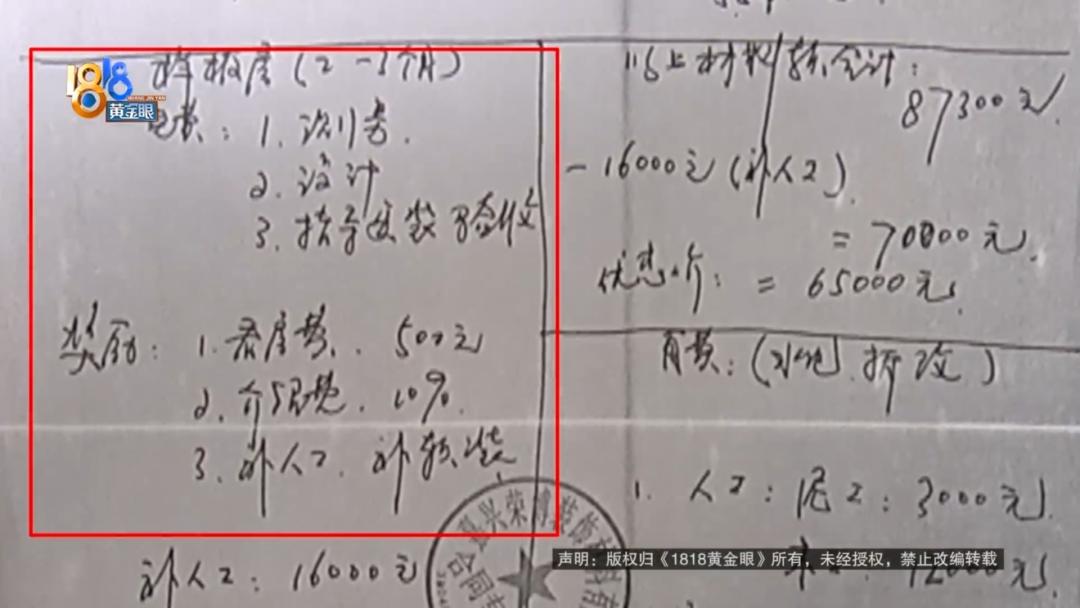 样板房(2-3个月)
免费：1.设计费.
2.设计
3.指导安装验收
奖励：1.看房费. 500元
2.介绍费. 10%.
3.补人工. 补软装
补人工：16000元
以上材料/软合计：
87300元
-16000元(补人工)
=70000元.
优惠价：=65000元
自费：(水电.拆改)
1.人工：泥工：3000元
12000元
1818
黄金眼
HUANG JIN YAN
嘉兴荣博装饰
合同
声明：版权归《1818黄金眼》所有，未经授权，禁止改编转载